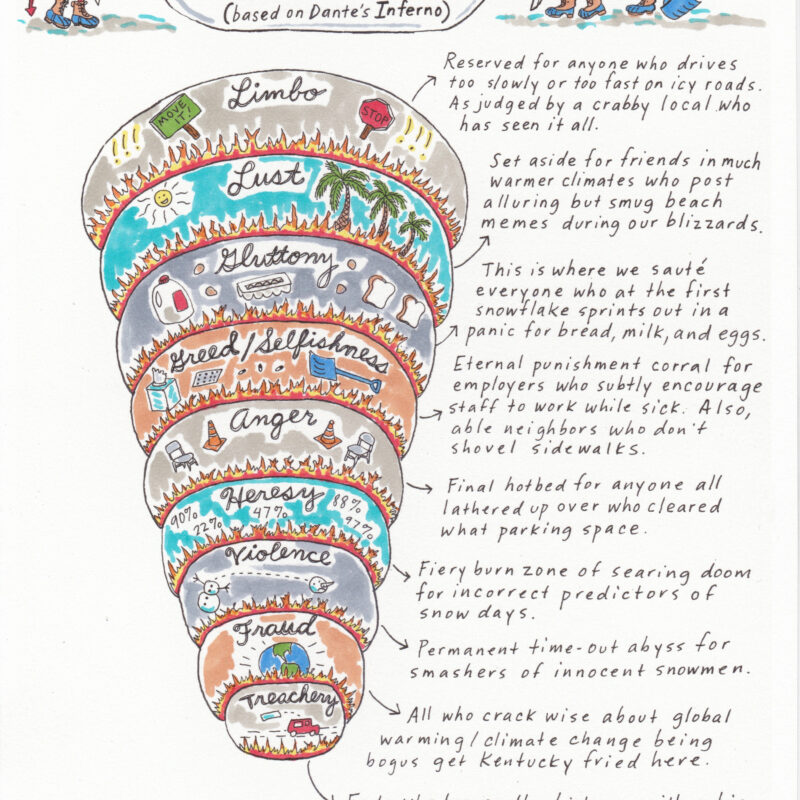 (based on Dante's Inferno)
Limbo
MOVE
IT!
STOP
!!!
!!!
Reserved for anyone who drives
too slowly or too fast on icy roads.
As judged by a crabby local who
has seen it all.
Lust
Set aside for friends in much
warmer climates who post
alluring but smug beach
memes during our blizzards.
Gluttony
This is where we sauté
everyone who at the first
snowflake sprints out in a
panic for bread, milk, and eggs.
Greed/Selfishness
Eternal punishment corral for
employers who subtly encourage
staff to work while sick. Also,
able neighbors who don't
shovel sidewalks.
Anger
Final hotbed for anyone all
lathered up over who cleared
what parking space.
Heresy
90% 22% 47% 88% 97%
Fiery burn zone of searing doom
for incorrect predictors of
snow days.
Violence
Permanent time-out abyss for
smashers of innocent snowmen.
Fraud
All who crack wise about global
warming/climate change being
bogus get Kentucky fried here.
Treachery